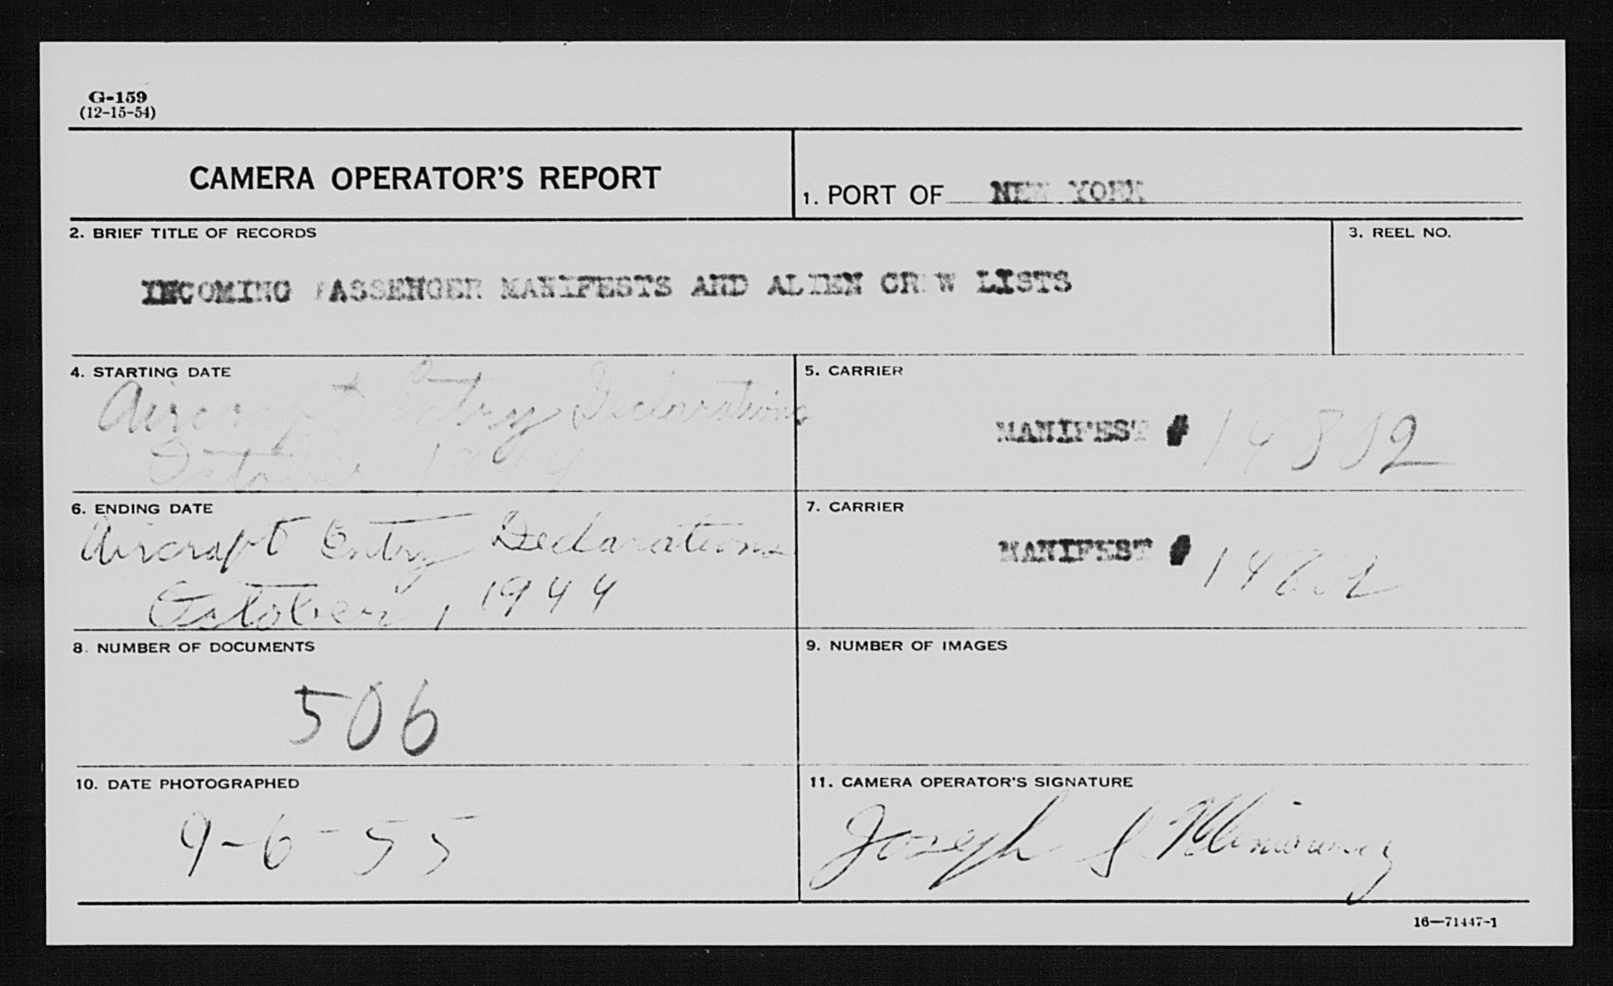 G-159
(12-15-54)
CAMERA OPERATOR'S REPORT
1. PORT OF NEW YORK
2. BRIEF TITLE OF RECORDS
3. REEL NO.
INCOMING PASSENGER MANIFESTS AND ALIEN CREW LISTS
4. STARTING DATE
Aircraft Entry Declarations
October 1944
5. CARRIER
MANIFEST # 14802
6. ENDING DATE
Aircraft Entry Declarations
October, 1944
7. CARRIER
MANIFEST # 
8. NUMBER OF DOCUMENTS
506
9. NUMBER OF IMAGES
10. DATE PHOTOGRAPHED
9-6-55
11. CAMERA OPERATOR'S SIGNATURE
Joseph S
16—71447-1